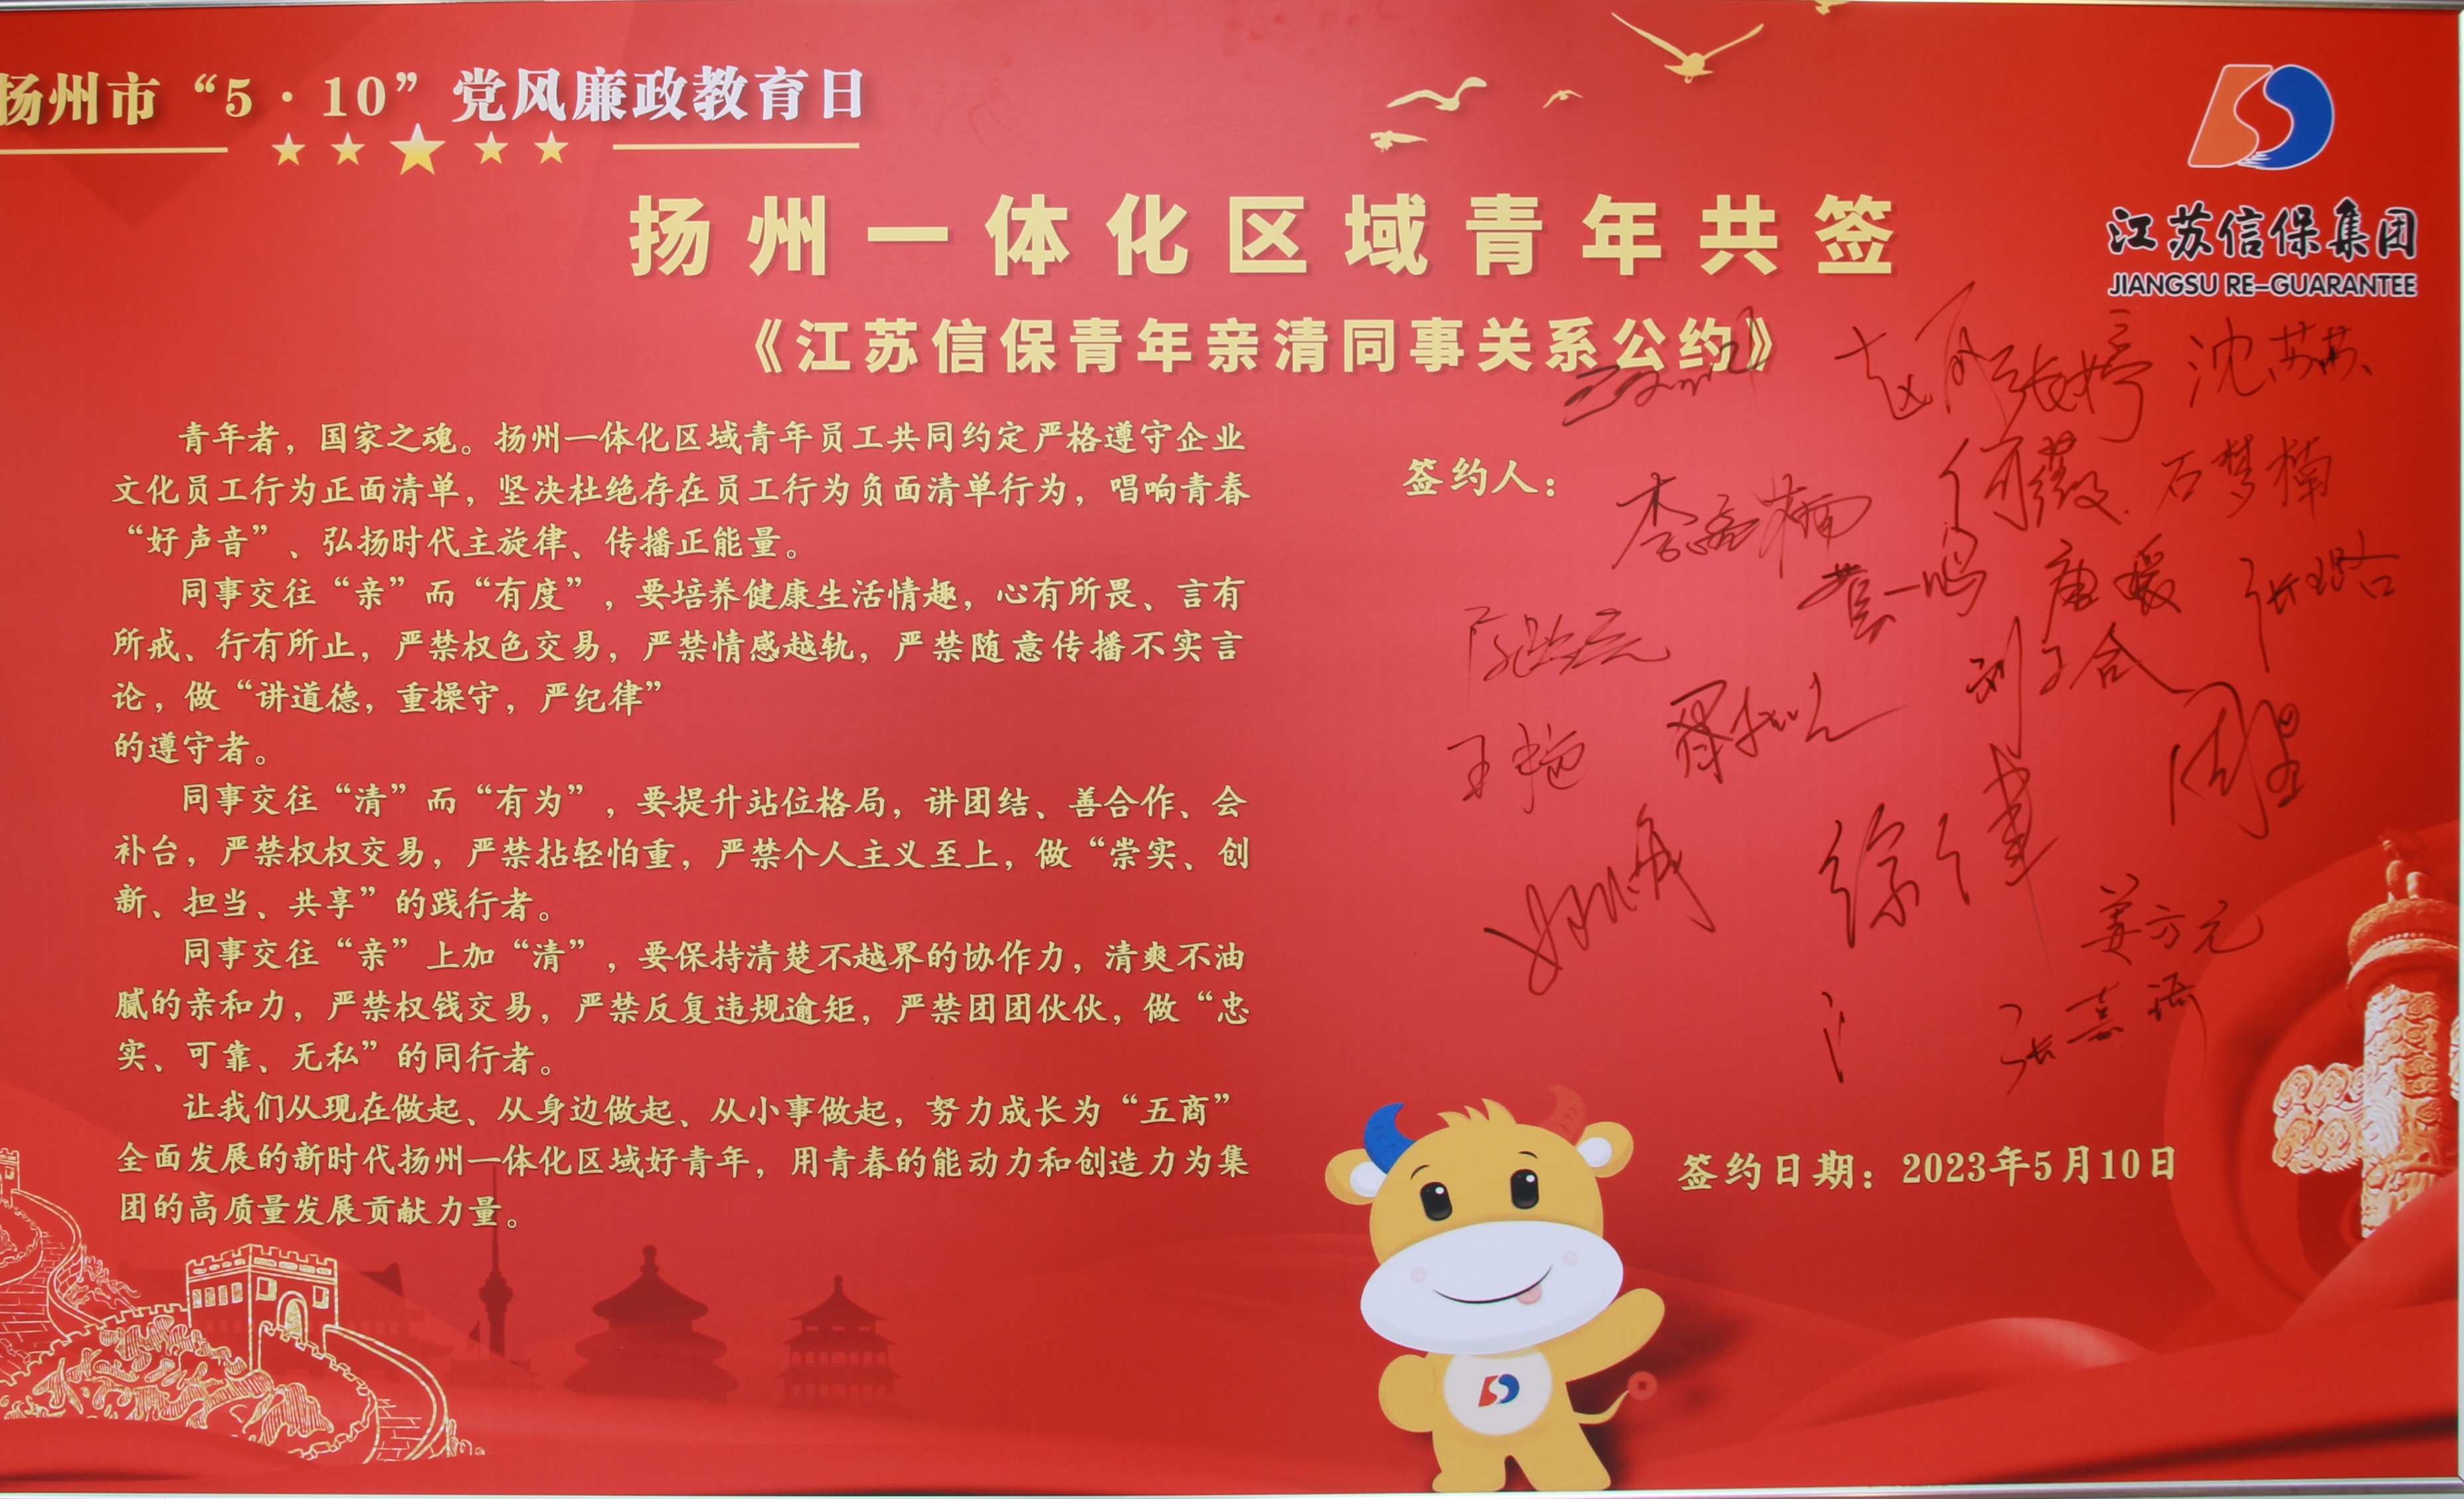 扬州市“5·10”党风廉政教育日
江苏信保集团
JIANGSU RE-GUARANTEE
扬州一体化区域青年共签
《江苏信保青年亲清同事关系公约》
青年者，国家之魂。扬州一体化区域青年员工共同约定严格遵守企业
文化员工行为正面清单，坚决杜绝存在员工行为负面清单行为，唱响青春
“好声音”、弘扬时代主旋律、传播正能量。
同事交往“亲”而“有度”，要培养健康生活情趣，心有所畏、言有
所戒、行有所止，严禁权色交易，严禁情感越轨，严禁随意传播不实言
论，做“讲道德，重操守，严纪律”
的遵守者。
同事交往“清”而“有为”，要提升站位格局，讲团结、善合作、会
补台，严禁权权交易，严禁拈轻怕重，严禁个人主义至上，做“崇实、创
新、担当、共享”的践行者。
同事交往“亲”上加“清”，要保持清楚不越界的协作力，清爽不油
腻的亲和力，严禁权钱交易，严禁反复违规逾矩，严禁团团伙伙，做“忠
实、可靠、无私”的同行者。
让我们从现在做起、从身边做起、从小事做起，努力成长为“五商”
全面发展的新时代扬州一体化区域好青年，用青春的能动力和创造力为集
团的高质量发展贡献力量。
签约人：
张婷
沈苏苏
何薇
石梦楠
黄一鸣
唐媛
张璐
刘子合
周星
徐健
姜方元
张嘉琦
签约日期：2023年5月10日